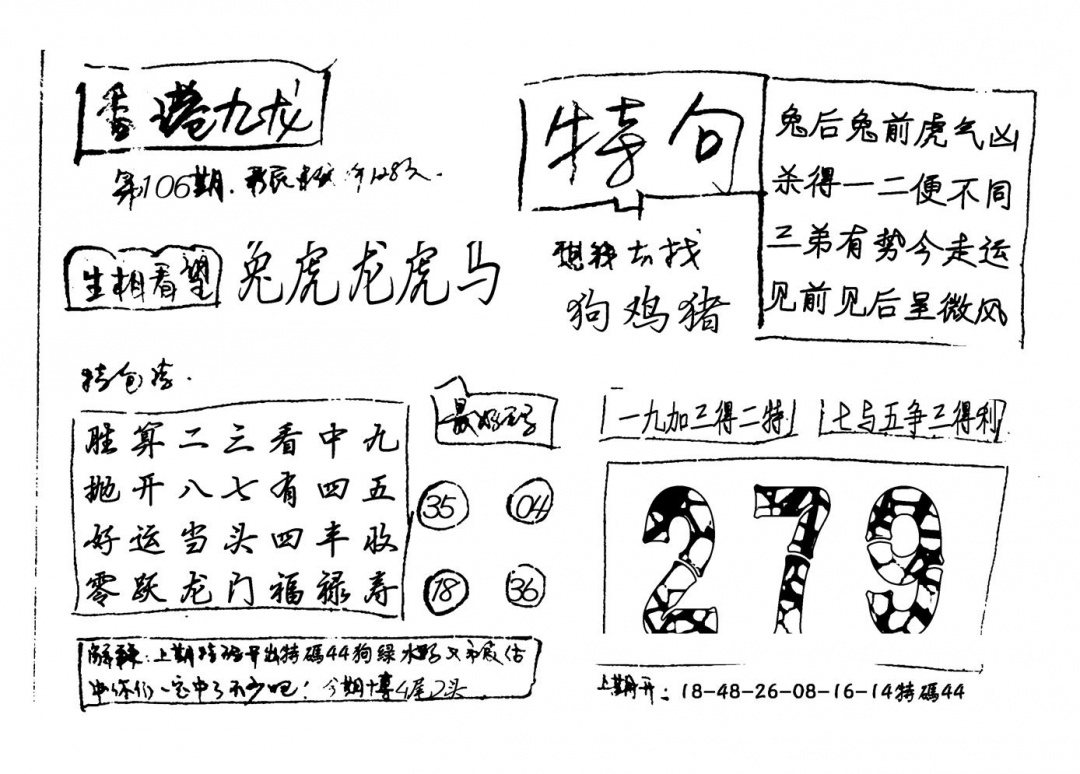 香港九龙
第106期.
生相看望
兔虎龙虎马
特句
想钱去找
狗鸡猪
兔后兔前虎气凶
杀得一二便不同
三弟有势今走运
见前见后呈微风
特包
胜算二三看中九
抛开八七有四五
好运当头四丰收
零跃龙门福禄寿
最好
35 04
18 36
一九加三得二特
七与五争三得利
279
解释:上期特码开出特碼44狗绿水
中你们一定中了不少吧!今期博4尾2头
上期开:18-48-26-08-16-14特碼44